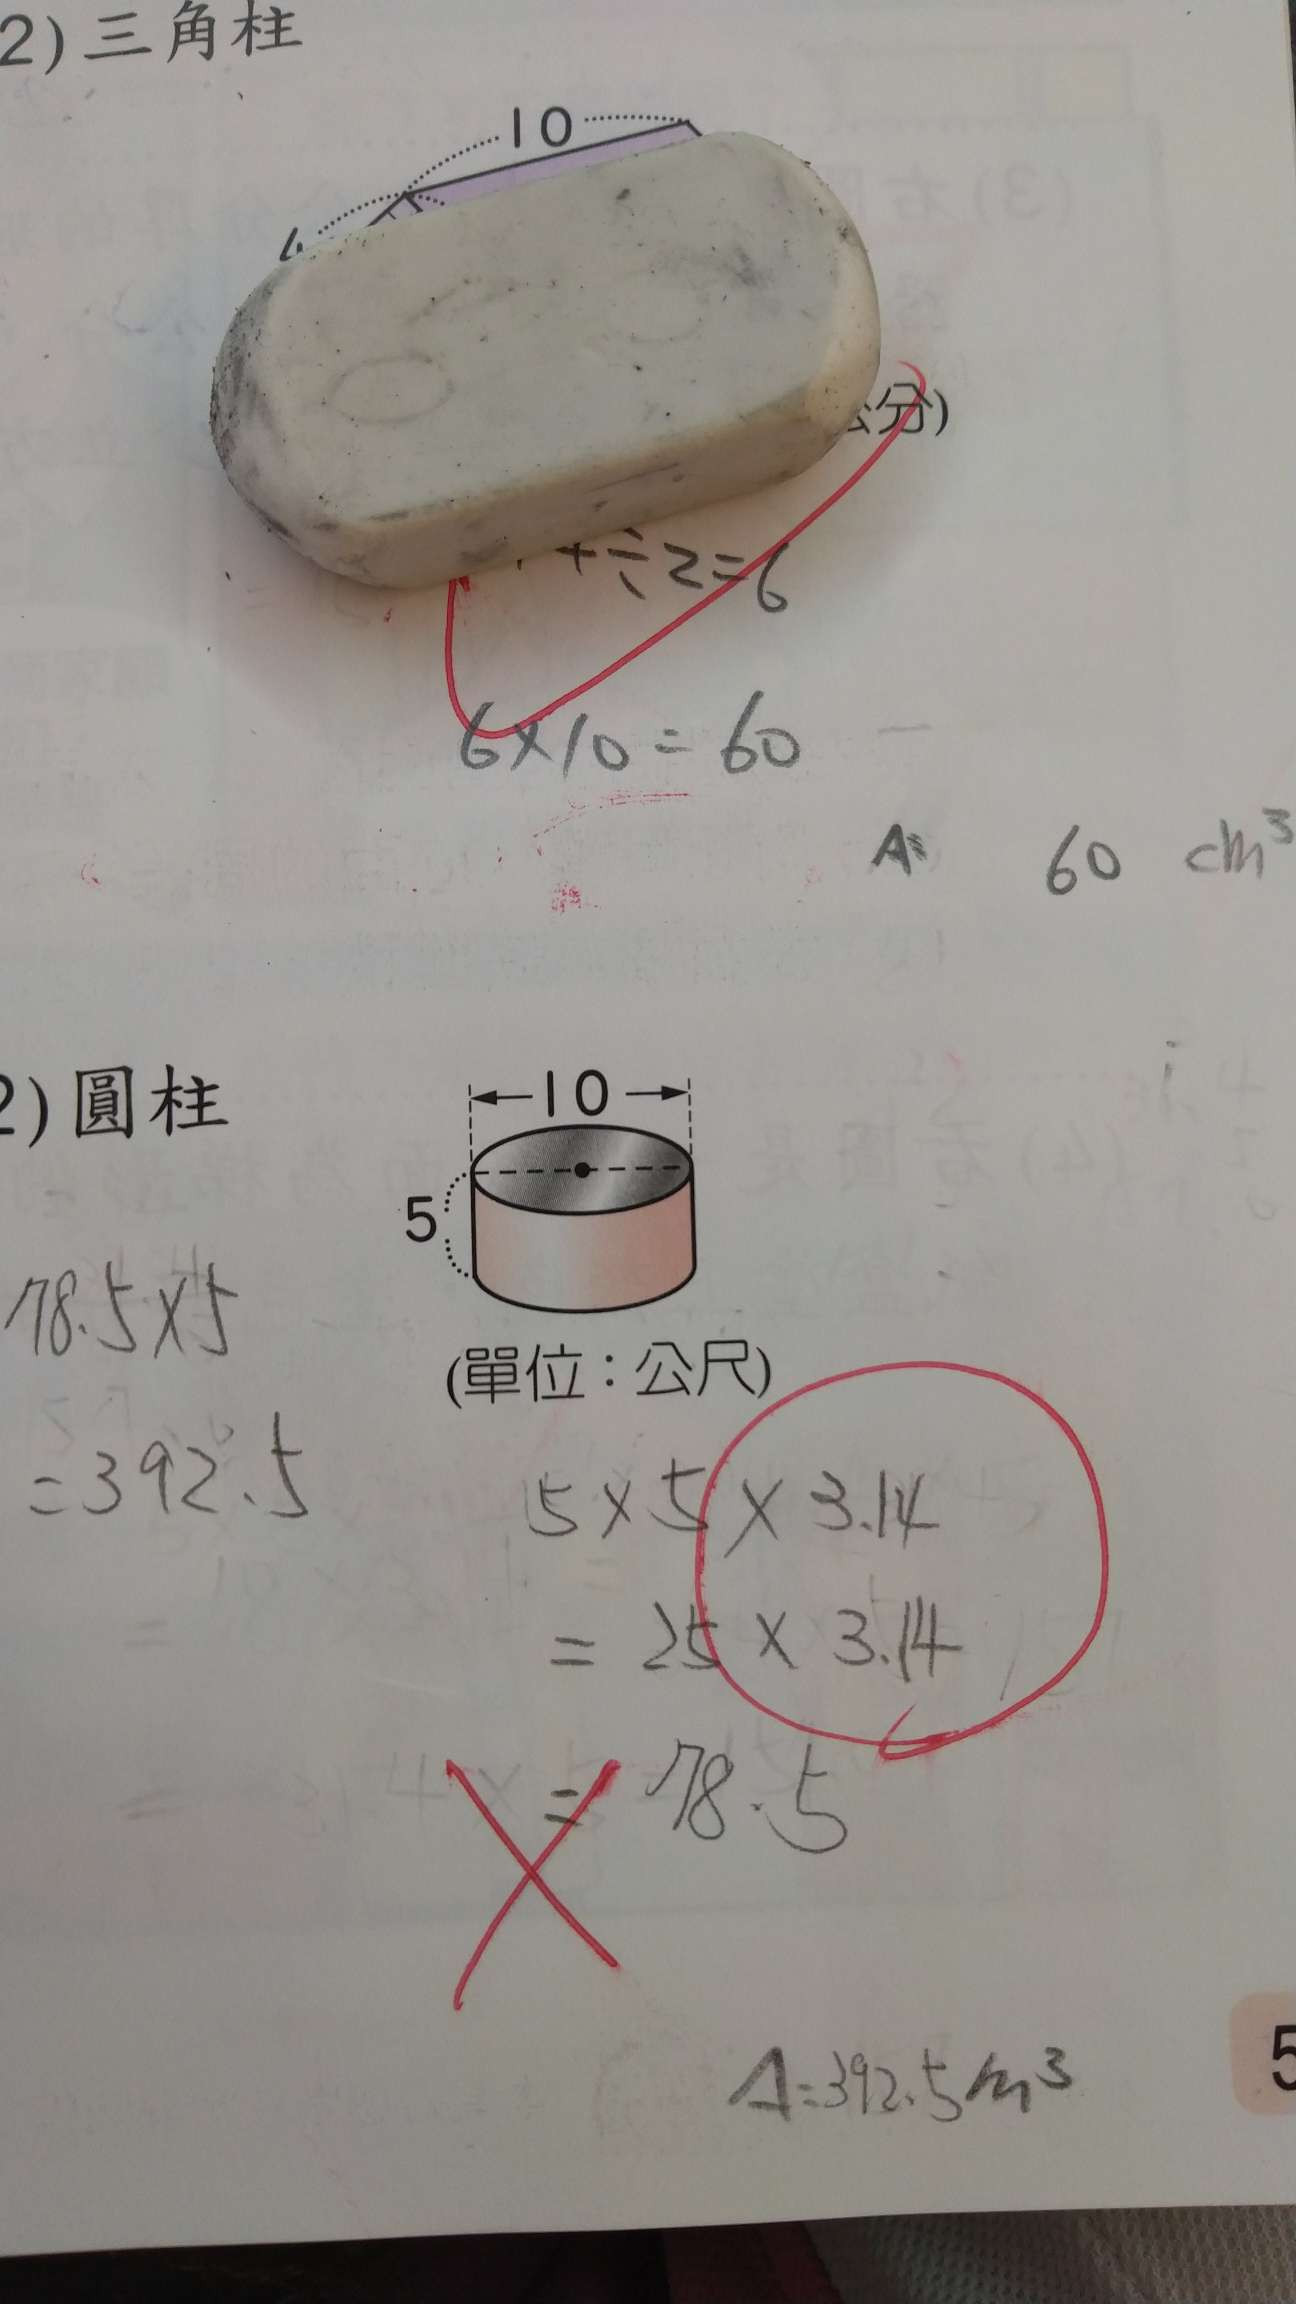 2) 三角柱
10
÷2=6
公分)
6×10=60
A: 60 cm³
2) 圓柱
10
5
(單位：公尺)
78.5×5
=392.5
5×5×3.14
=25×3.14
=78.5
A=392.5m³
5